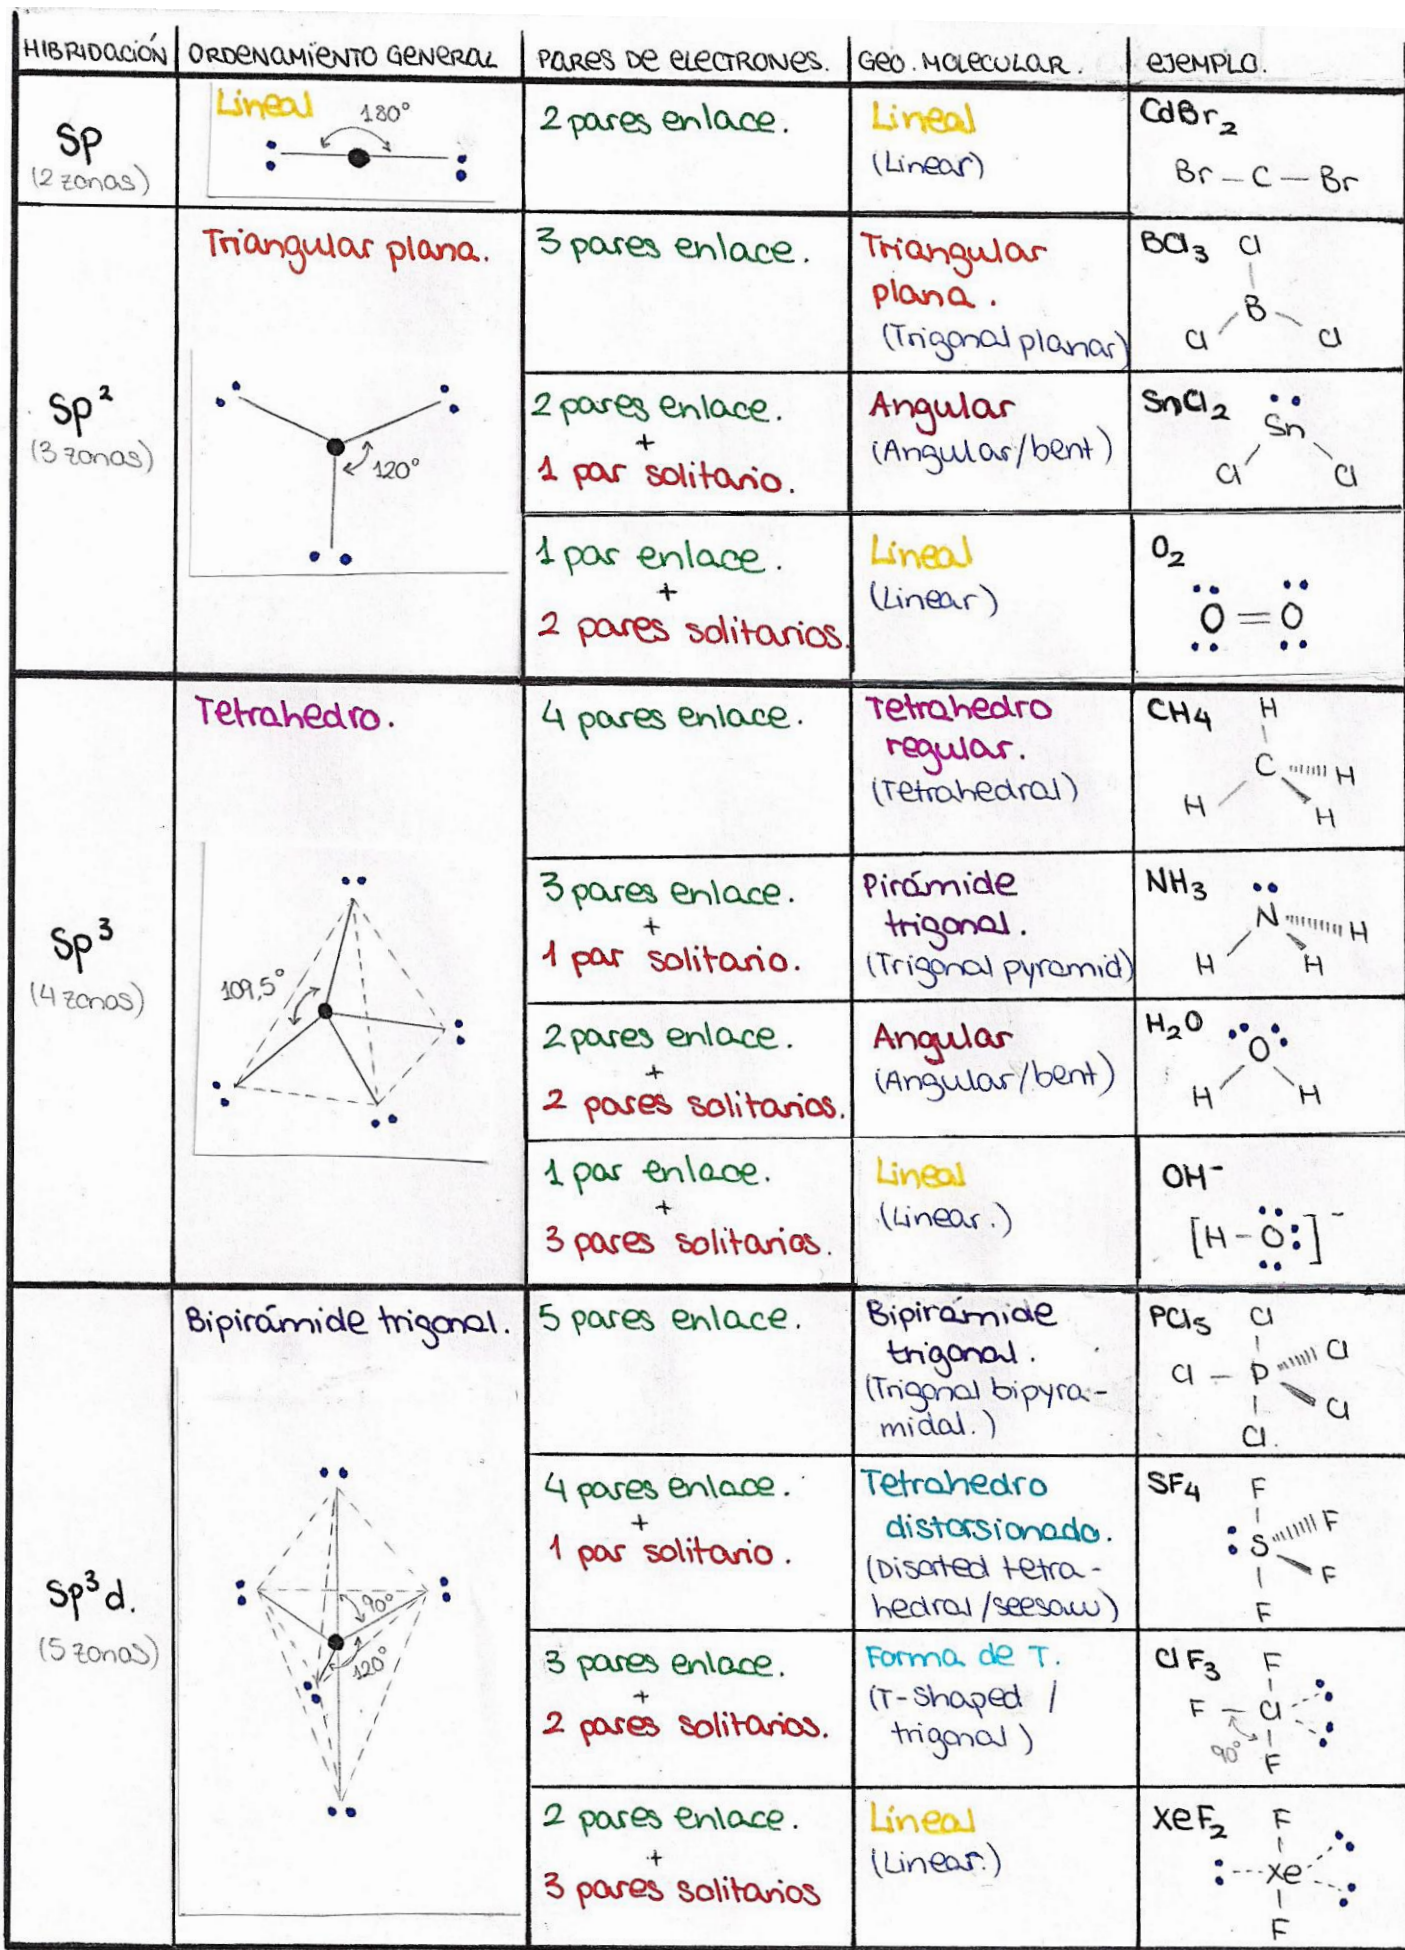 HIBRIDACIÓN
ORDENAMIENTO GENERAL
PARES DE ELECTRONES.
GEO. MOLECULAR.
EJEMPLO.
Sp
(2 zonas)
Lineal
180°
2 pares enlace.
Lineal
(Linear)
CdBr₂
Br – C – Br
Sp²
(3 zonas)
Triangular plana.
120°
3 pares enlace.
Triangular
plana.
(Trigonal planar)
BCl₃
Cl
B
Cl Cl
2 pares enlace.
+
1 par solitario.
Angular
(Angular/bent)
SnCl₂
Sn
Cl Cl
1 par enlace.
+
2 pares solitarios.
Lineal
(Linear)
O₂
O = O
Sp³
(4 zonas)
Tetrahedro.
109,5°
4 pares enlace.
Tetrahedro
regular.
(Tetrahedral)
CH₄
H
C H
H H
3 pares enlace.
+
1 par solitario.
Pirámide
trigonal.
(Trigonal pyramid)
NH₃
N H
H H
2 pares enlace.
+
2 pares solitarios.
Angular
(Angular/bent)
H₂O
O
H H
1 par enlace.
+
3 pares solitarios.
Lineal
(Linear.)
OH⁻
[H – O:]⁻
Sp³d.
(5 zonas)
Bipirámide trigonal.
90°
120°
5 pares enlace.
Bipirámide
trigonal.
(Trigonal bipyra-
midal.)
PCl₅
Cl
Cl – P Cl
Cl
Cl.
4 pares enlace.
+
1 par solitario.
Tetrahedro
distorsionado.
(Disorted tetra-
hedral/seesaw)
SF₄
F
:S F
F
F
3 pares enlace.
+
2 pares solitarios.
Forma de T.
(T-Shaped /
trigonal)
ClF₃
F
F – Cl
90°
F
2 pares enlace.
+
3 pares solitarios
Lineal
(Linear.)
XeF₂
F
Xe
F